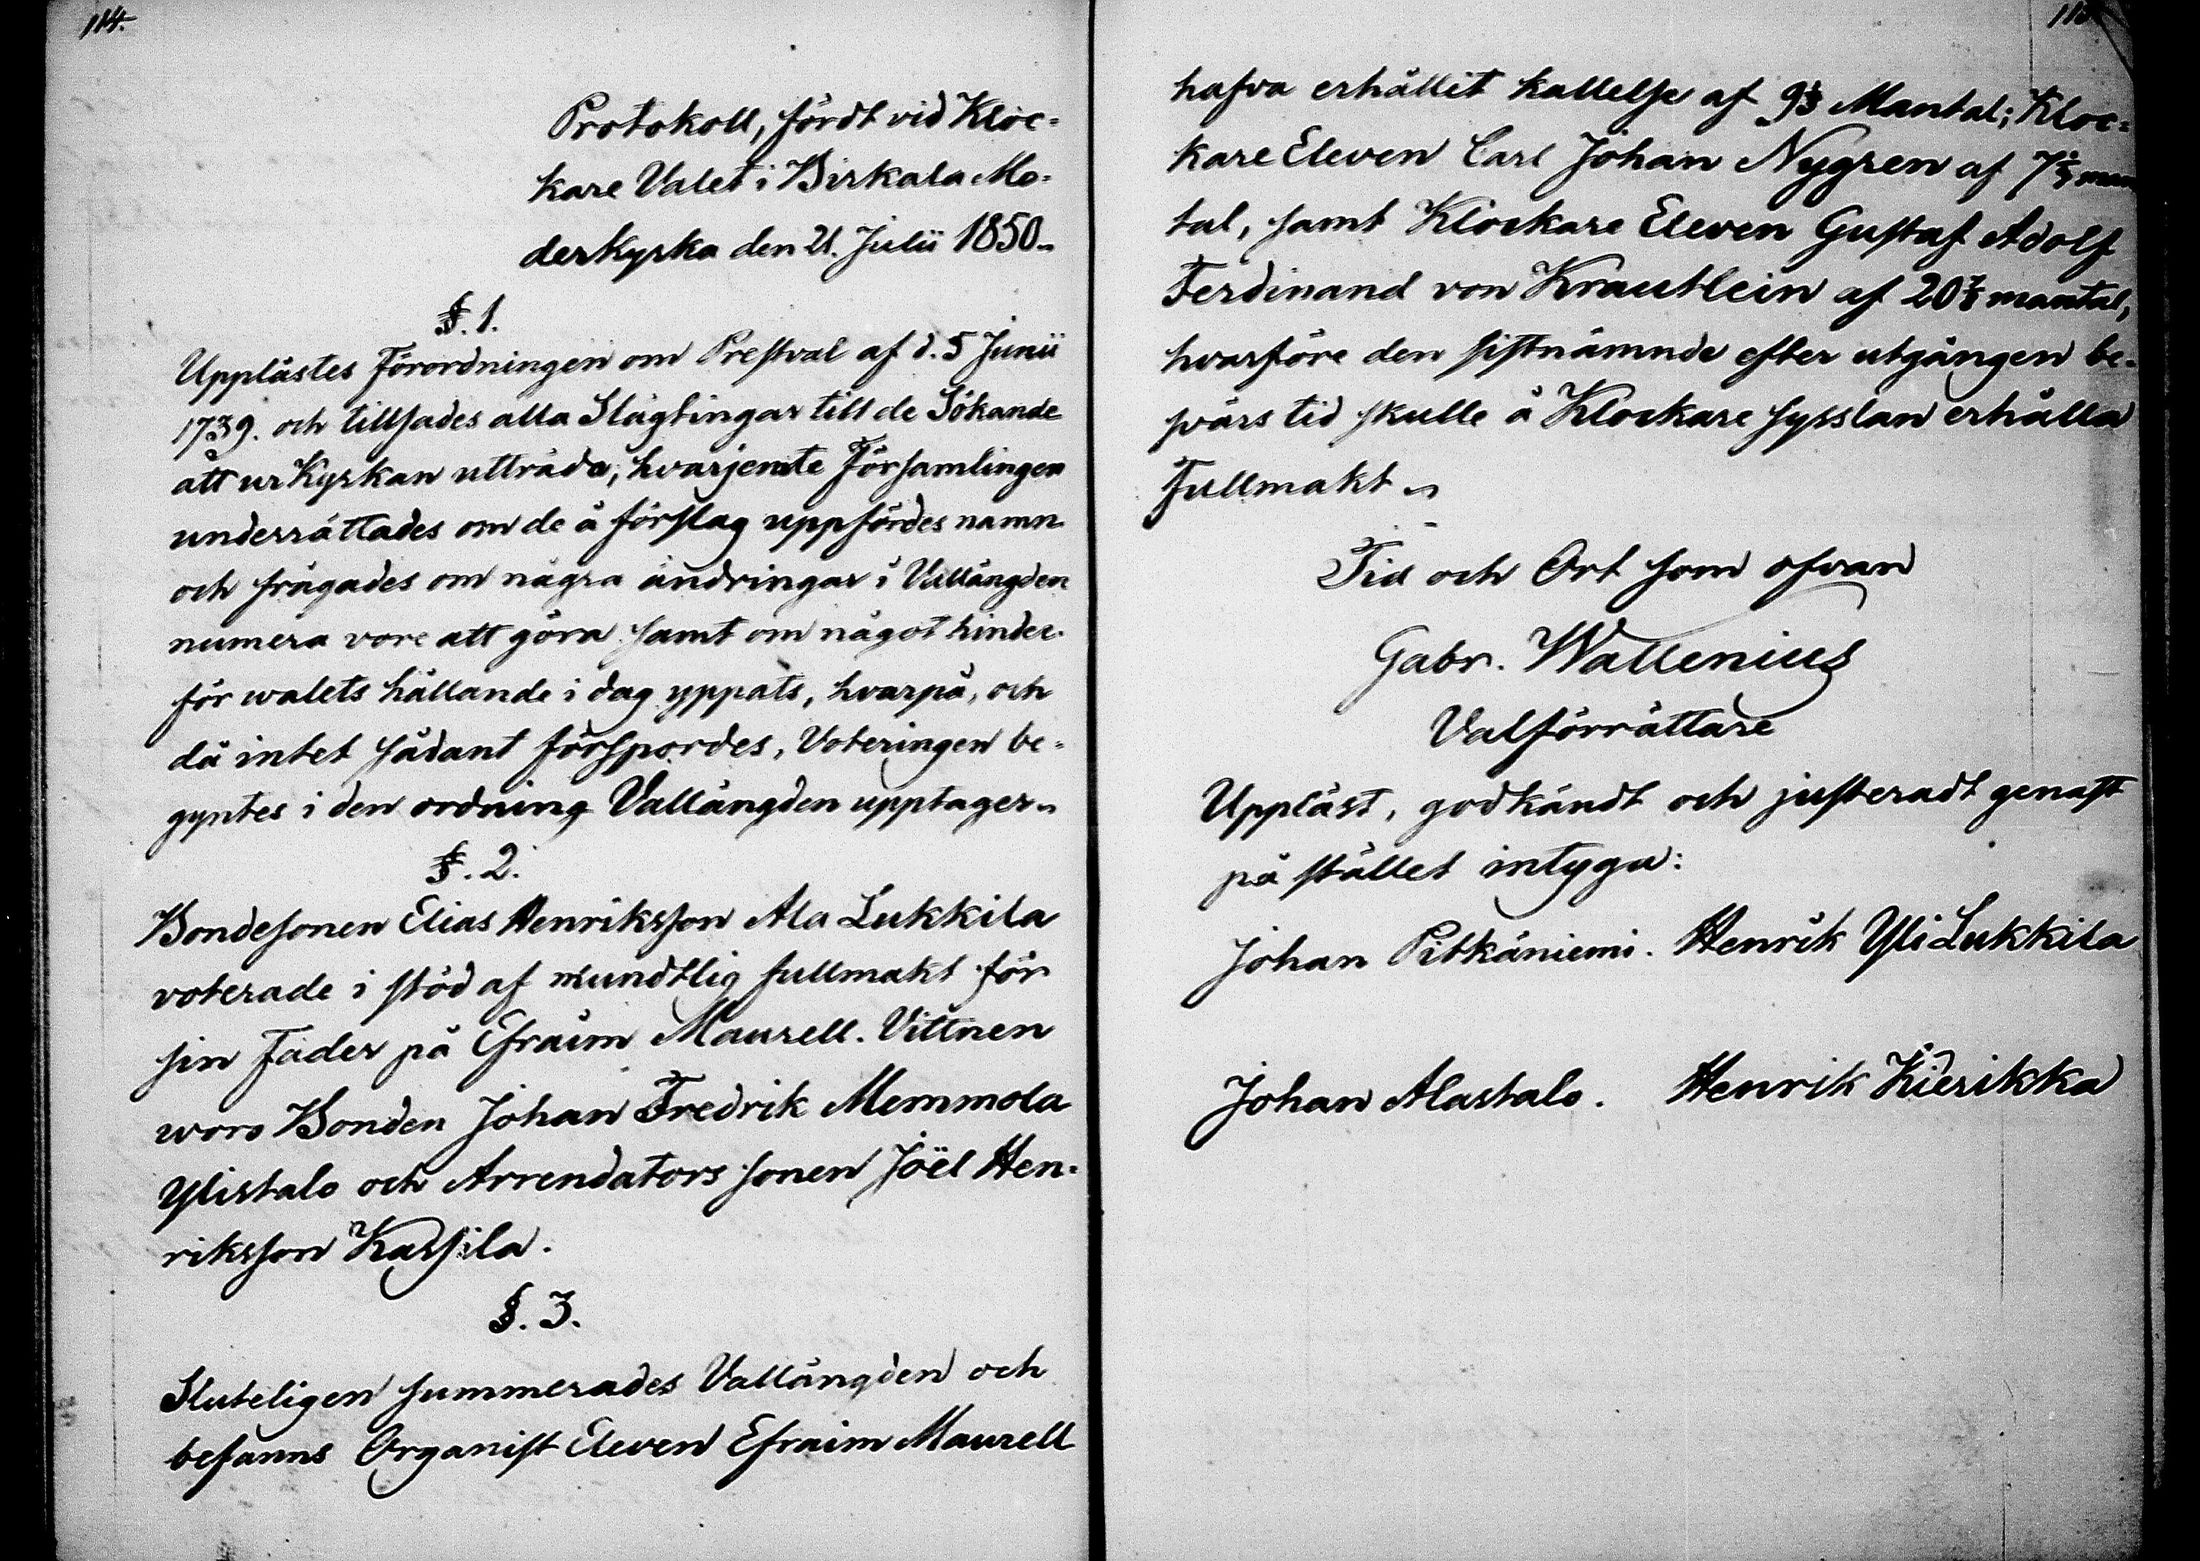 114.
Protokoll, fördt vid Kloc-
kare Valet i Birkala Mo-
derkyrka den 21. Julii 1850.
§. 1.
Upplästes Förordningen om Prestval af d. 5 Junii
1739. och tillsades alla Slägtingar till de Sökande
att ur Kyrkan utträda; hvarjemte Församlingen
underrättades om de å förslag uppfördes namn
och frågades om några ändringar i Vallängden
numera vore att göra samt om något hinder
för walets hållande i dag yppats, hvarpå, och
då intet sådant förspordes, Voteringen be-
gyntes i den ordning Vallängden upptager.
§. 2.
Bondesonen Elias Henriksson Ala Lukkila
voterade i stöd af mundtlig fullmakt för
sin Fader på Efraim Maurell. Vittnen
woro Bonden Johan Fredrik Memmola
Ylistalo och Arrendators sonen Joël Hen-
riksson Kassila.
§. 3.
Sluteligen summerades Vallängden och
befanns Organist Eleven Efraim Maurell
hafva erhållit kallelse af 9⅓ Mantal; Kloc-
kare Eleven Carl Johan Nygren af man
tal, samt Klockare Eleven Gustaf Adolf
Ferdinand von Krautlein af mantal,
hvarföre den sistnämnde efter utgången be-
svärs tid skulle å Klockare sysslan erhålla
Fullmakt.
Tid och Ort som ofvan
Gabr. Wallenius
Valförrättare
Uppläst, godkändt och justeradt genast
på stället intyga:
Johan Pitkäniemi. Henrik Yli Lukkila
Johan Alastalo. Henrik Kierikka